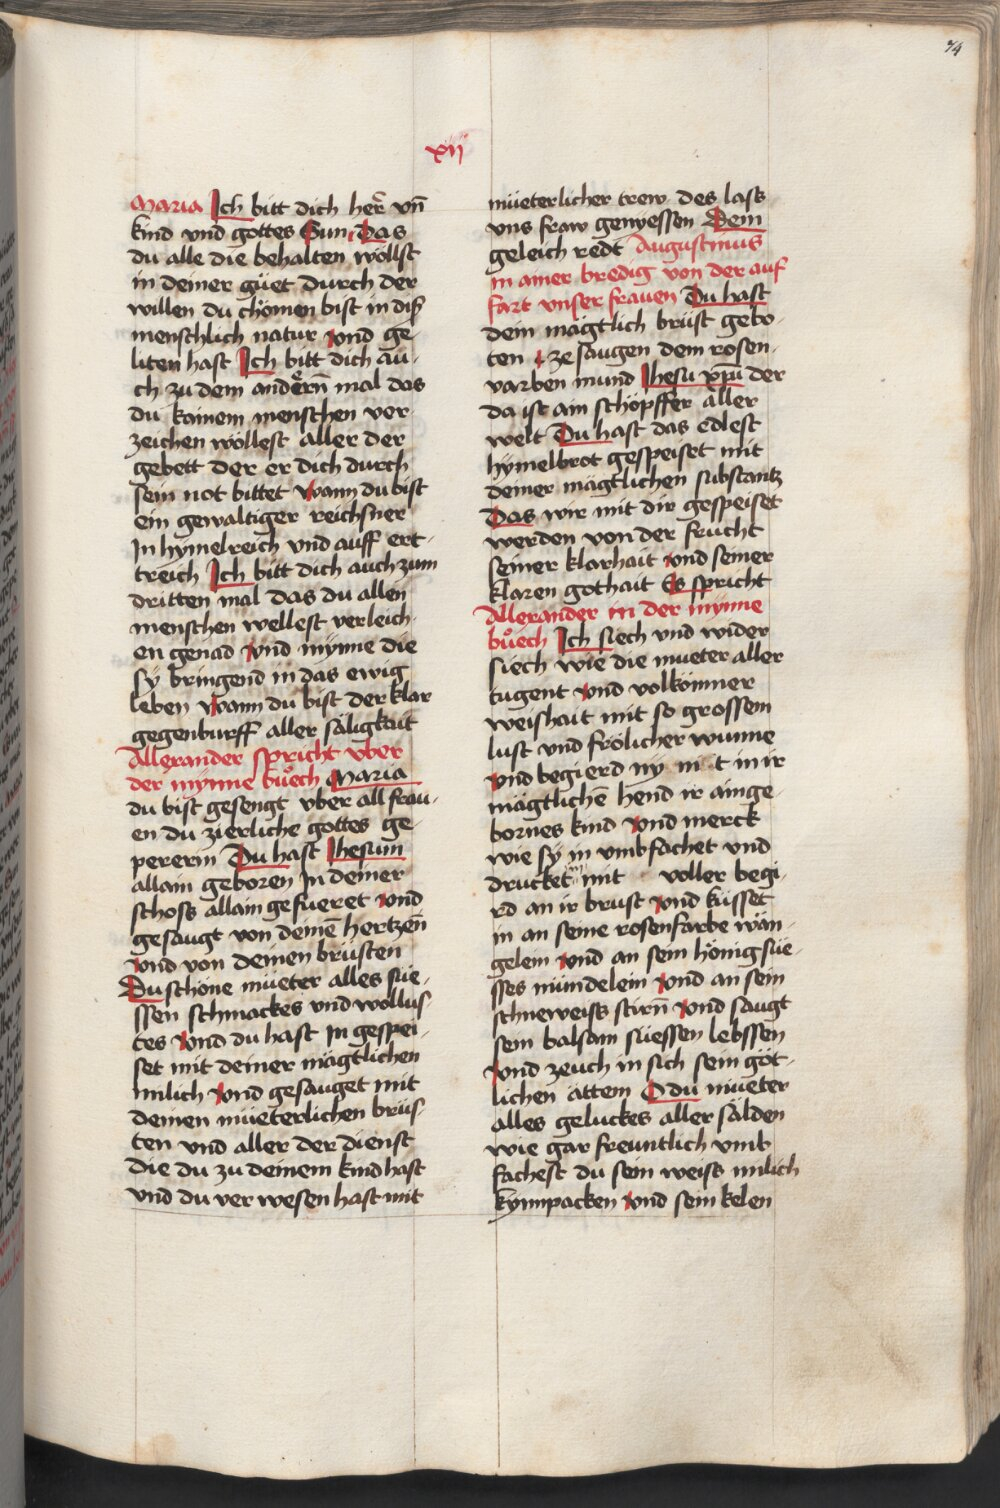 74
xij
Maria Ich bitt dich her̄ vn̄
kind vnd gottes Sun Das
du alle die behalten wöllst
in deiner güet durch der
willen du chömen bist in diß
menschlich natur vnd ge
liten hast Ich bitt dich au-
ch zu dem andern̄ mal das
du kainem menschen ver
zeichen wöllest aller der
gebett der er dich durch
sein not bittet wann du bist
ein gewaltiger reichsner
In hymelreich vnd auff ert-
treich Ich bitt dich auch zum
dritten mal das du allen
menschen wellest verleich-
en genad vnd mynne die
sy bringend in das ewig
leben wann du bist der klar
gegenburff aller säligkait
Allexander spricht vber
der mynne buͦech Maria
du bist gesengt vber all frau-
en du zierliche gottes ge-
pererin Du hast Ihesum
allain geboren In deiner
schoss allain gefueret vnd
gesaugt von deinē hertzen̄
vnd von deinen brüsten
Du schöne müeter alles süe-
ssen schmackes vnd wollus-
tes vnd du hast in gespei-
set mit deiner mägtlichen
milich vnd gesauget mit
deinen müeterlichen brüs-
ten vnd aller der dienst
die du zu deinem kind hast
vnd du ver wesen hast mit
müeterlicher trew des lass
vns fraw genyessen Dem
geleich redt Augustinus
in ainer bredig von der auf
fart vnser frauen Du hast
dein mägtlich brüst gebo-
ten ze saugen dem rosen-
varben mund Ihesu xp̄ū der
da ist ain schöpffer aller
welt Du hast das edlest
hymelbrot gespeiset mit
deiner mägtlichen substantz
Das wir mit dir gespeiset
werden von der frücht
seiner klarhait vnd seiner
klaren gothait Es spricht
Allexander in der mynne
buͦech Ich siech vnd wider
siech wie die mueter aller
tugent vnd volkömner
weishait mit so grossem
lust vnd frölicher wunne
vnd begierd ny in t in ir
mägtlichē hend ir ainge-
bornes kind vnd merck
wie sy in vmbfachet vnd
drucket in mit voller begi-
rd an ir brust vnd küsset
in an seine rosenfarbe wän-
gelein vnd an sein hönigsüe-
sses mündelein vnd an sein
schneweiss stirn̄ vnd saugt
sein balsam süessen lebssen
vnd zeuch in sich sein göt-
lichen attem O du müeter
alles geluckes aller sälden
wie gar freuntlich vmb
fachest du sein weiss milich
kynnpacken vnd sein kelen